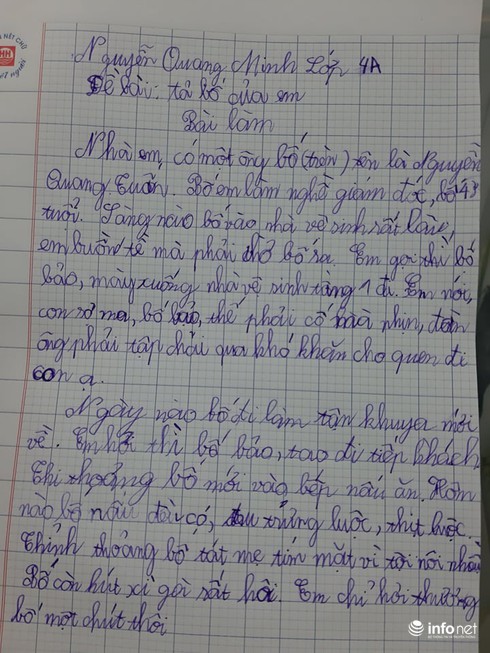 NÉT CHỮ
NẾT NGƯỜI
Nguyễn Quang Minh Lớp 4A
Đề bài: tả bố của em
Bài làm
Nhà em, có một ông bố (tròn) tên là Nguyễn
Quang Tuấn. Bố em làm nghề giám đốc, bố 43
tuổi. Sáng nào bố vào nhà vệ sinh rất lâu,
em buồn tè mà phải chờ bố ra. Em gọi thì bố
bảo, mày xuống nhà vệ sinh tầng 1 đi. Em nói,
con sợ ma, bố bảo, thế phải cố mà nhịn, đàn
ông phải tập chải qua khó khăn cho quen đi
con ạ.
Ngày nào bố đi làm tận khuya mới
về. Em hỏi thì bố bảo, tao đi tiếp khách
Thi thoảng bố mới vào bếp nấu ăn. Hôm
nào bố nấu đều có, trứng luộc, thịt luộc.
Thỉnh thoảng bố tát mẹ tím mặt vì tội nói nhiều
Bố còn hút xì gà rất hôi. Em chỉ hơi thương
bố một chút thôi
infonet